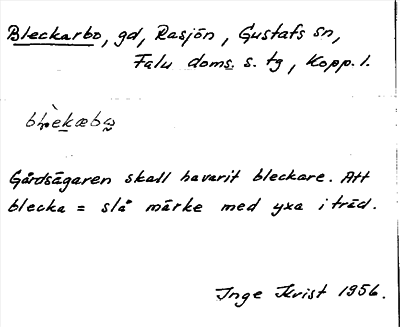 Bleckarbo, gd, Rasjön, Gustafs sn,
Falu doms. s. tg, Kopp. l.
Gårdsägaren skall ha varit bleckare. Att
blecka = slå märke med yxa i träd.
Inge Kvist 1956.